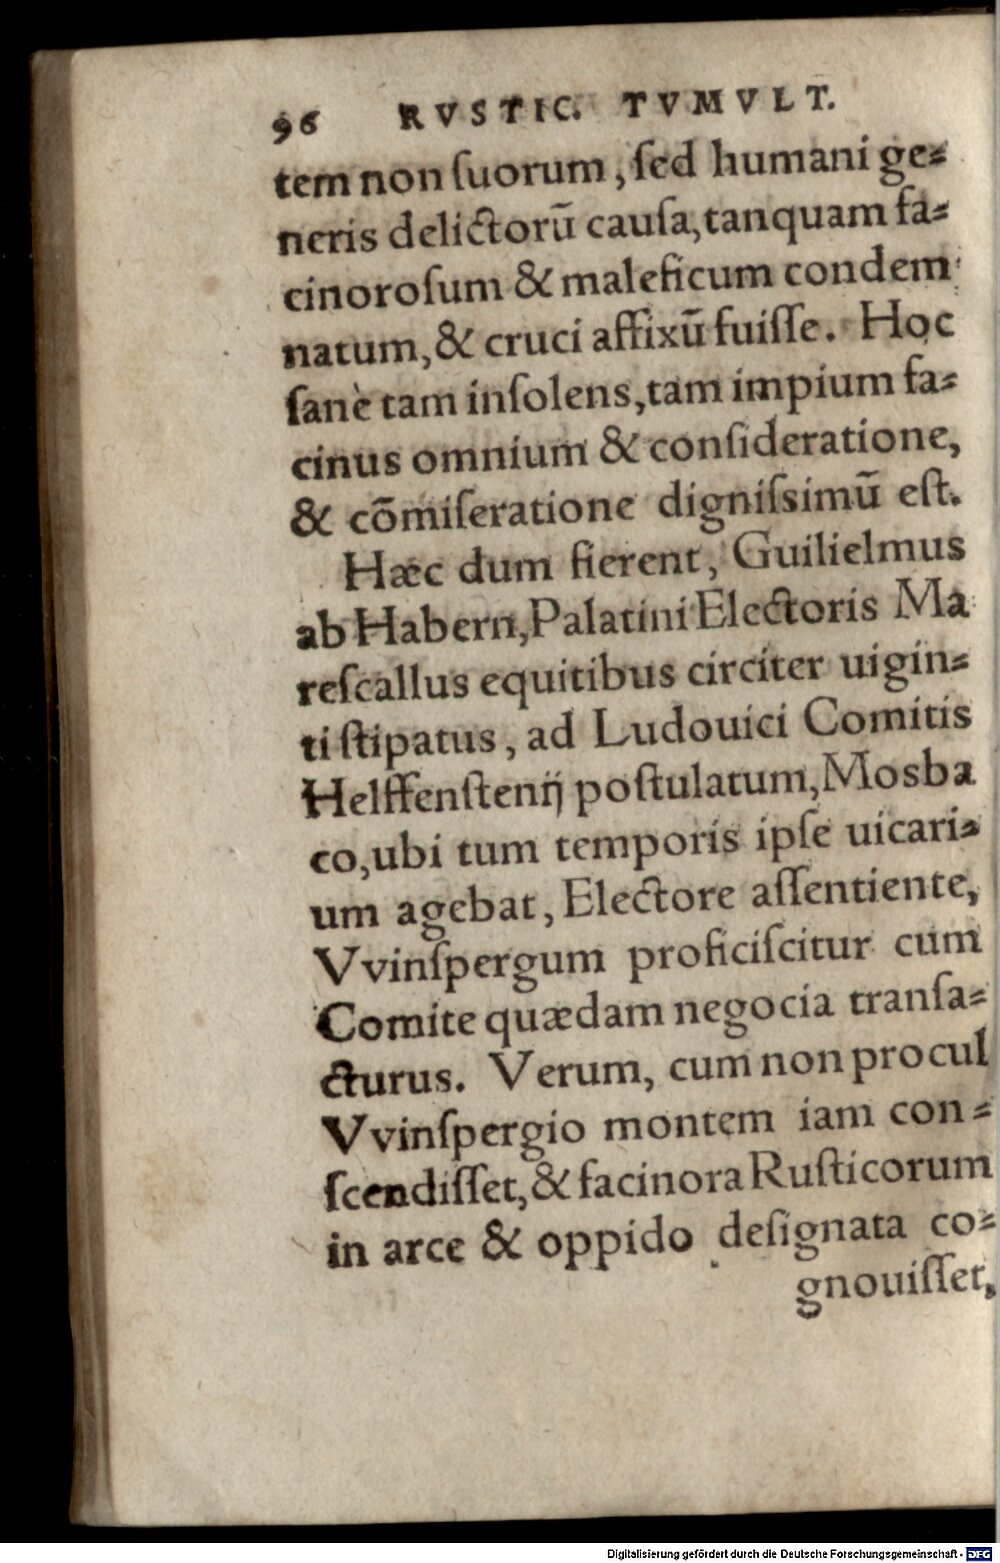 96 RVSTIC. TVMVLT.
tem non ſuorum, ſed humani ge=
neris delictorū cauſa, tanquam fa=
cinoroſum & maleficum condem
natum, & cruci affixū fuiſſe. Hoc
ſanè tam inſolens, tam impium fa=
cinus omnium & conſideratione,
& cōmiſeratione digniſsimū eſt.
Hæc dum fierent, Guilielmus
ab Habern, Palatini Electoris Ma
reſcallus equitibus circiter uigin=
ti ſtipatus, ad Ludouici Comitis
Helffenſtenij poſtulatum, Mosba
co, ubi tum temporis ipſe uicari=
um agebat, Electore aſſentiente,
Vvinſpergum proficiſcitur cum
Comite quædam negocia tranſa=
cturus. Verum, cum non procul
Vvinſpergio montem iam con=
ſcendiſſet, & facinora Ruſticorum
in arce & oppido deſignata co=
gnouiſſet,
Digitalisierung gefördert durch die Deutsche Forschungsgemeinschaft - DFG